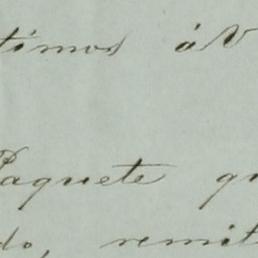 timos á V
Paquete qu
do, remit